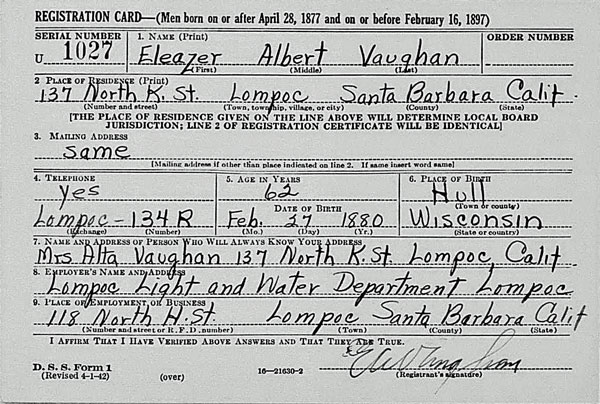 REGISTRATION CARD—(Men born on or after April 28, 1877 and on or before February 16, 1897)
SERIAL NUMBER 1. NAME (Print) ORDER NUMBER
U 1027 Eleazer Albert Vaughan
(First) (Middle) (Last)
2 PLACE OF RESIDENCE (Print)
137 North K. St. Lompoc Santa Barbara Calif.
(Number and street) (Town, township, village, or city) (County) (State)
[THE PLACE OF RESIDENCE GIVEN ON THE LINE ABOVE WILL DETERMINE LOCAL BOARD
JURISDICTION; LINE 2 OF REGISTRATION CERTIFICATE WILL BE IDENTICAL]
3. MAILING ADDRESS
same
[Mailing address if other than place indicated on line 2. If same insert word same]
4. TELEPHONE 5. AGE IN YEARS 6. PLACE OF BIRTH
yes 62 Hull
DATE OF BIRTH (Town or county)
Lompoc - 134 R Feb. 27 1880 Wisconsin
(Exchange) (Number) (Mo.) (Day) (Yr.) (State or country)
7. NAME AND ADDRESS OF PERSON WHO WILL ALWAYS KNOW YOUR ADDRESS
Mrs Alta Vaughan 137 North K. St. Lompoc, Calif
8. EMPLOYER'S NAME AND ADDRESS
Lompoc Light and Water Department Lompoc
9. PLACE OF EMPLOYMENT OR BUSINESS
118 North H. St. Lompoc Santa Barbara Calif
(Number and street or R. F. D. number) (Town) (County) (State)
I AFFIRM THAT I HAVE VERIFIED ABOVE ANSWERS AND THAT THEY ARE TRUE.
D. S. S. Form 1
(Revised 4-1-42) (over) 16—21630-2 (Registrant's signature)